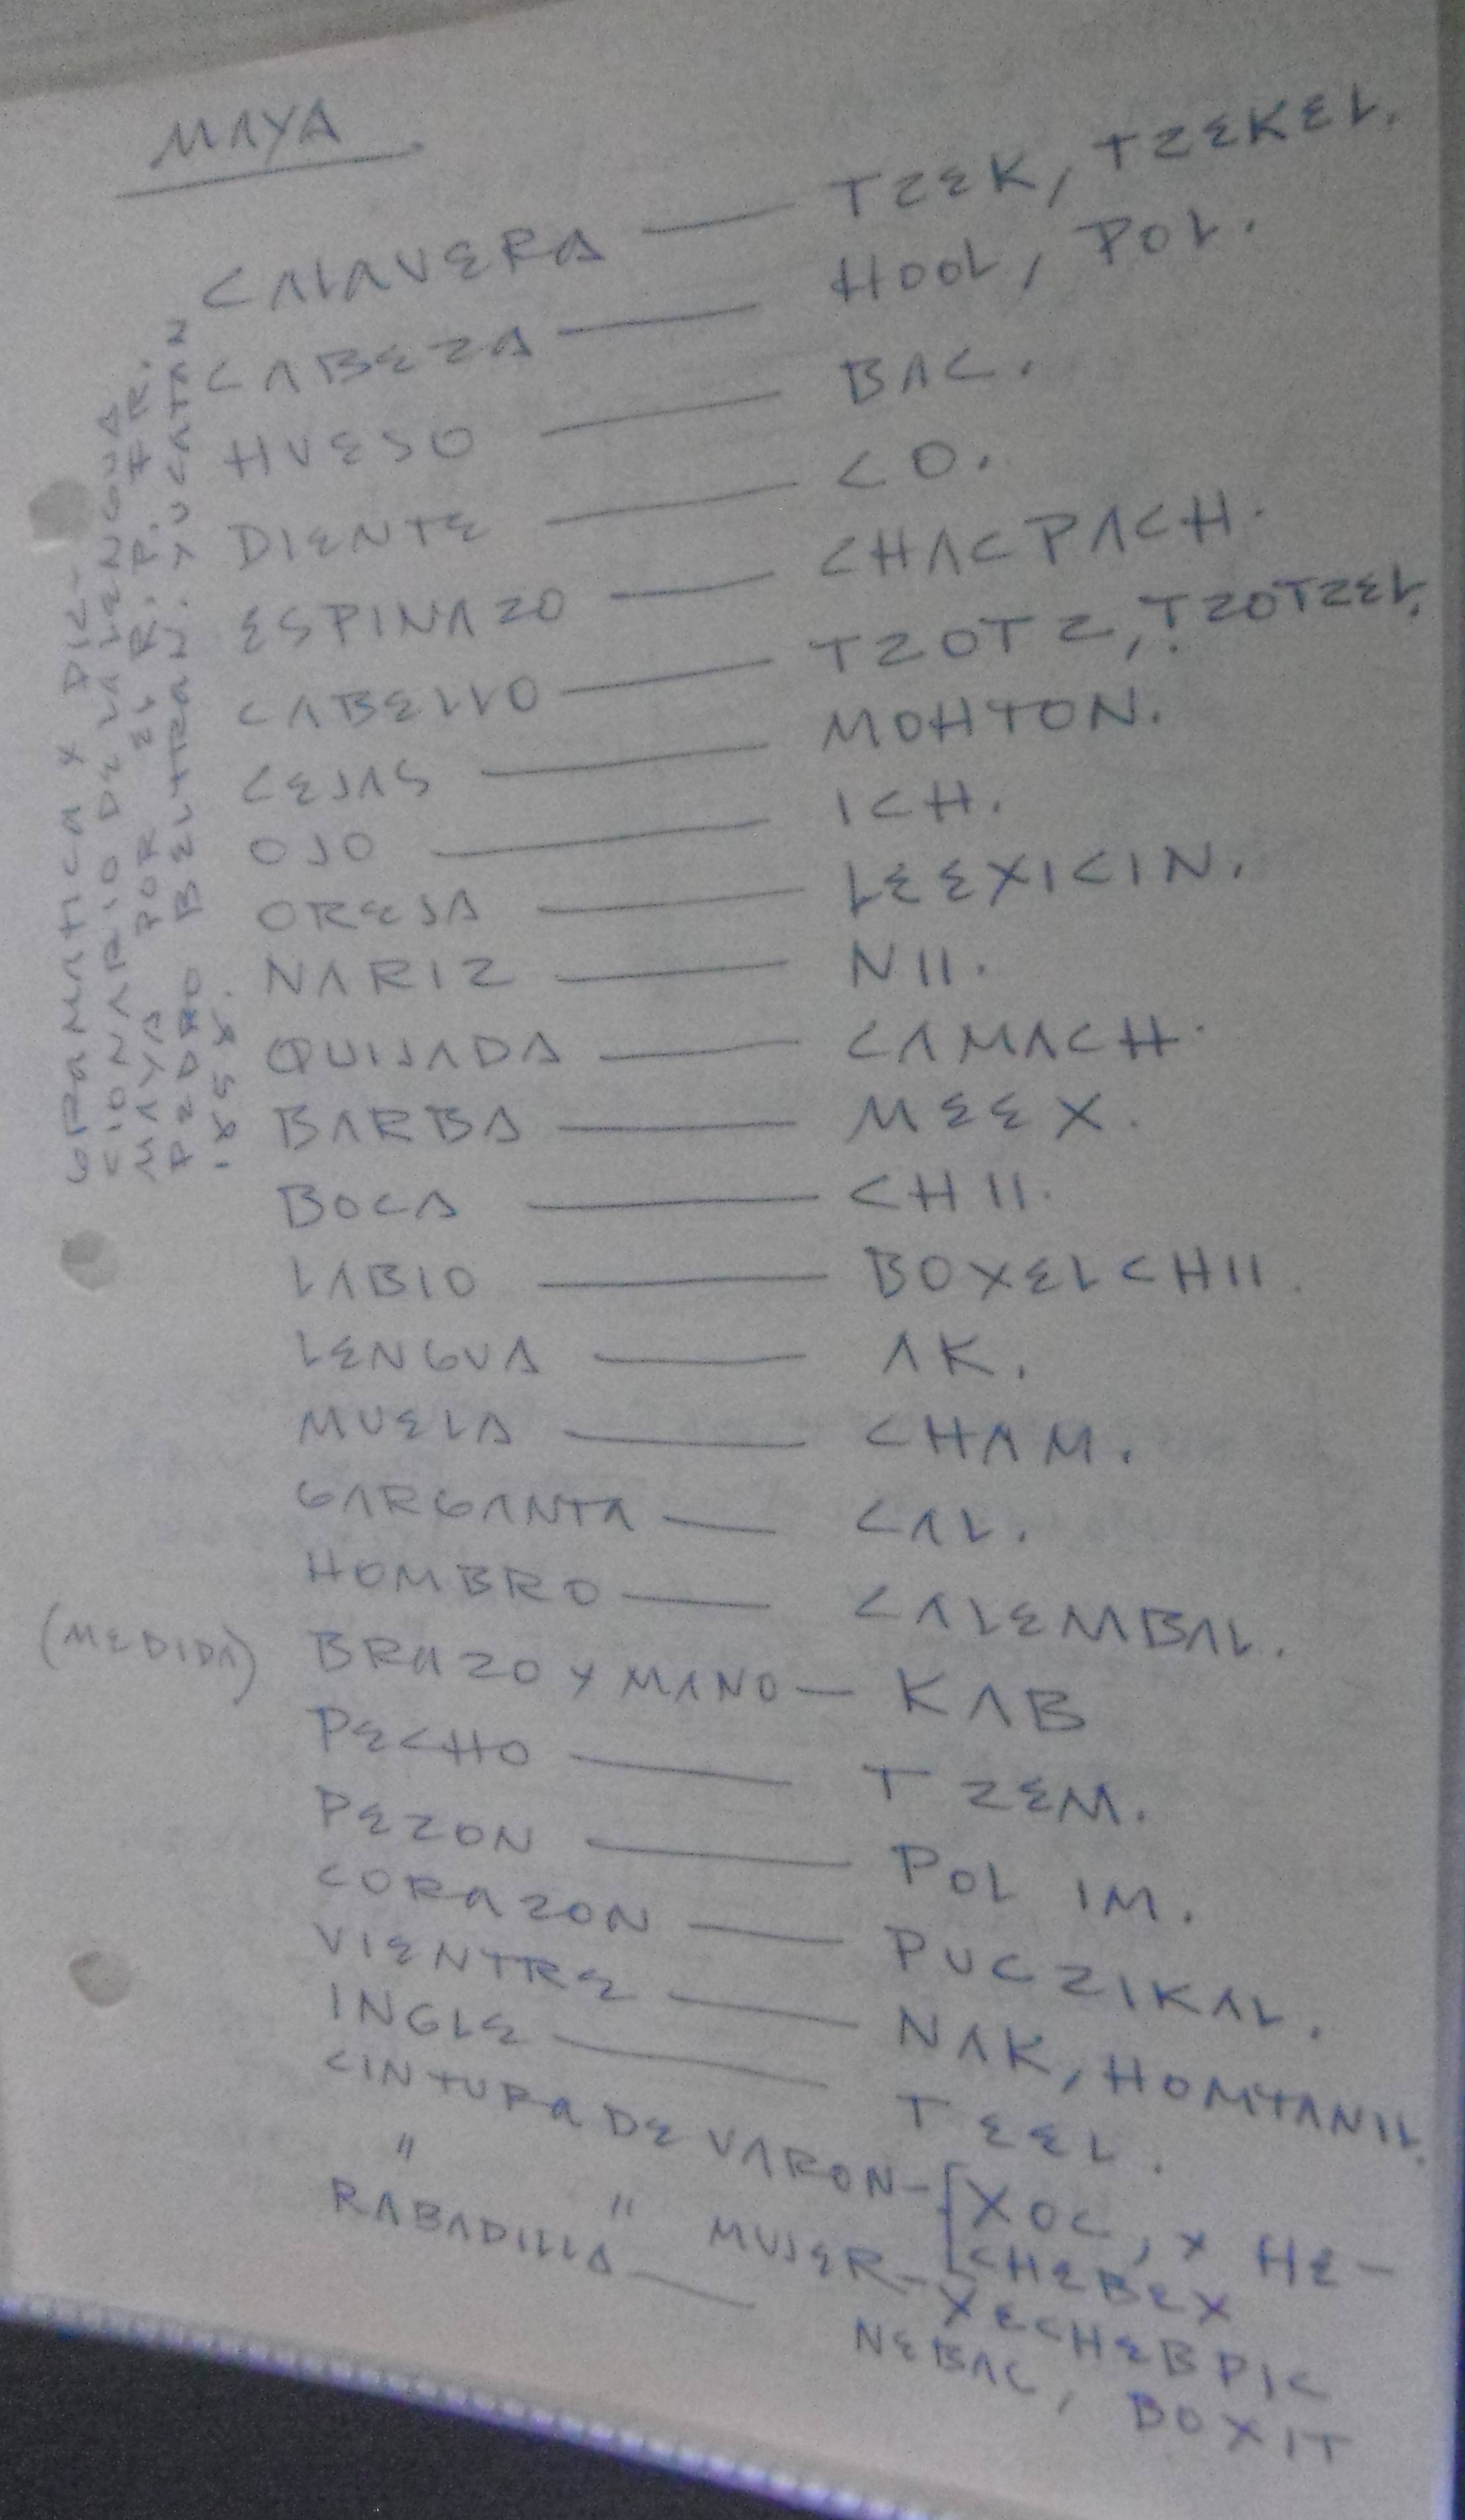 MAYA
CALAVERA — TZEK, TZEKEL.
CABEZA — HOOL, POL.
HUESO — BAC.
DIENTE — CO.
ESPINAZO — CHACPACH.
CABELLO — TZOTZ, TZOTZEL.
CEJAS — MOHTON.
OJO — ICH.
OREJA — LEEXICIN.
NARIZ — NII.
QUIJADA — CAMACH.
BARBA — MEEX.
BOCA — CHII.
LABIO — BOXELCHII.
LENGUA — AK.
MUELA — CHAM.
GARGANTA — CAL.
HOMBRO — CALEMBAL.
(MEDIDA) BRAZO Y MANO — KAB
PECHO — TZEM.
PEZON — POL IM.
CORAZON — PUCZIKAL.
VIENTRE — NAK, HOMTANIL.
INGLE — TEEL.
CINTURA DE VARON — [XOC, X HE-
CHEBEX
" " MUJER — XECHEBPIC
RABADILLA — NEBAC, BOXIT
GRAMATICA Y DIC-
CIONARIO DE LA LENGUA
MAYA POR EL R. P. FR.
PEDRO BELTRAN. YUCATAN
1859.